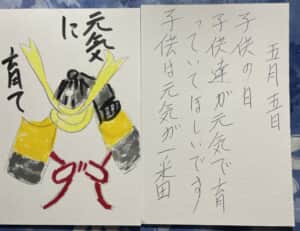 元気
に
育て
五月五日
子供の日
子供達が元気で育
っていてほしいです
子供は元気が一番